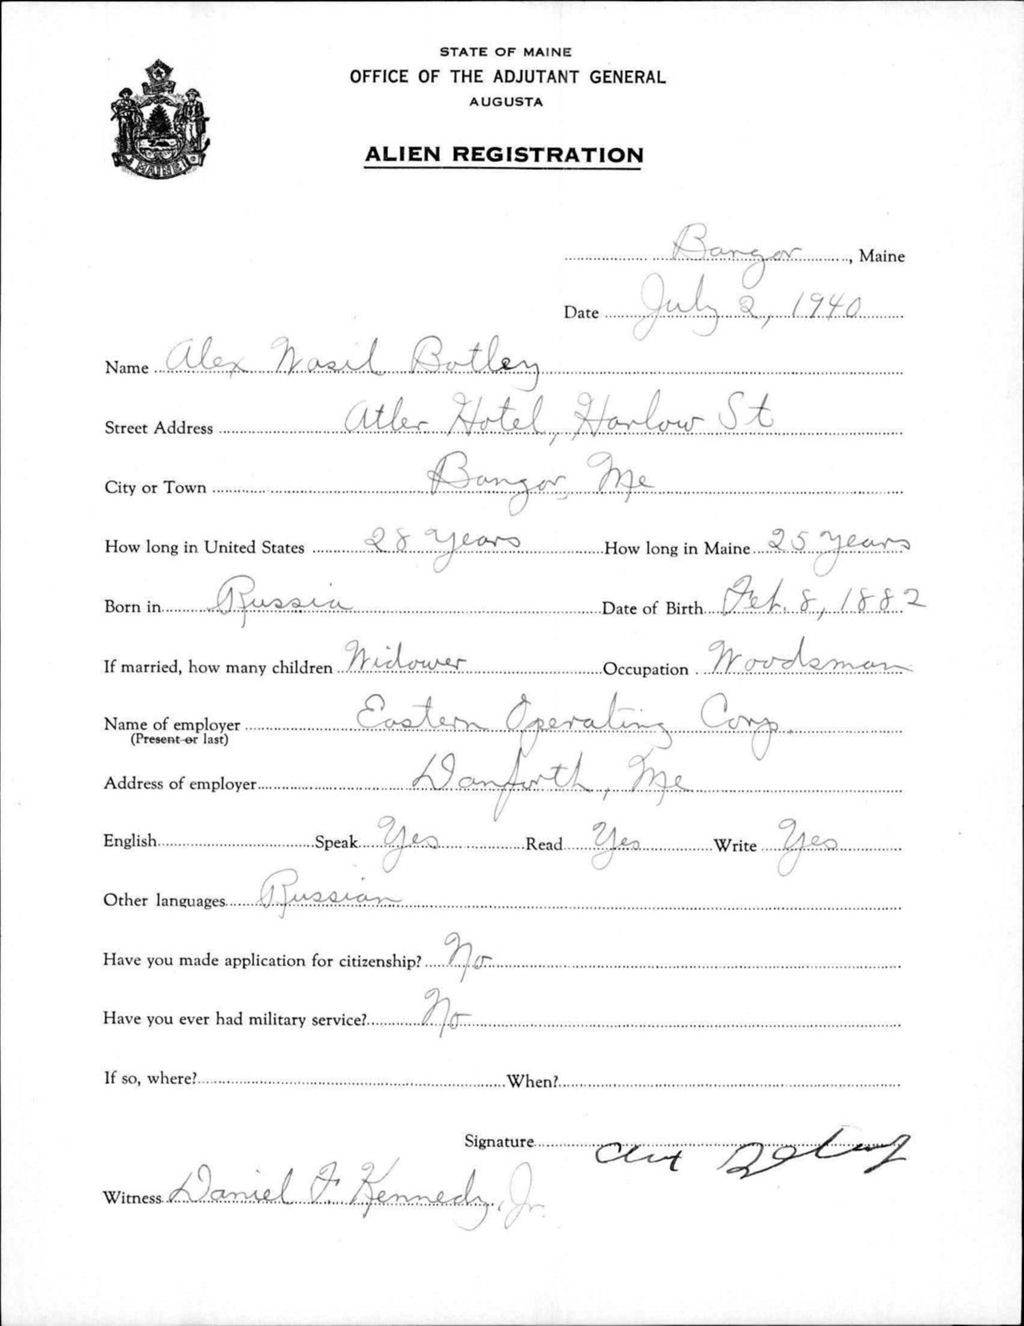 STATE OF MAINE
OFFICE OF THE ADJUTANT GENERAL
AUGUSTA
ALIEN REGISTRATION
MAINE
Bangor, Maine
Date July 2, 1940
Name Alex Wasil Botley
Street Address Atler Hotel, Harlow St
City or Town Bangor, Me
How long in United States 28 years How long in Maine 25 years
Born in Russia Date of Birth Feb. 8, 1882
If married, how many children Widower Occupation Woodsman
Name of employer Eastern Operating Corp.
(Present or last)
Address of employer Danforth, Me
English Speak Yes Read Yes Write Yes
Other languages Russian
Have you made application for citizenship? No
Have you ever had military service? No
If so, where? When?
Signature
Witness Daniel F. Kennedy, Jr.